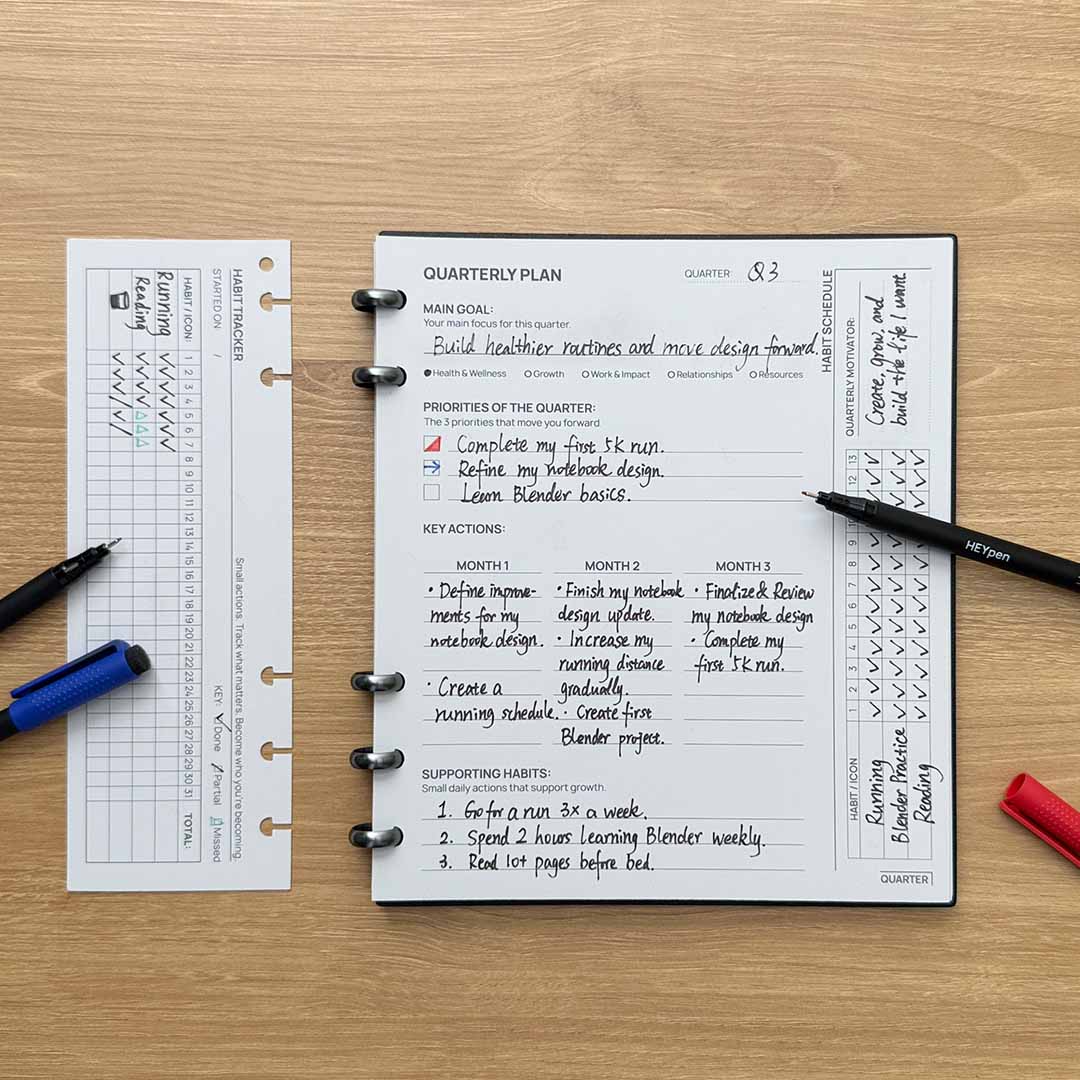 HABIT TRACKER
STARTED ON /
HABIT / ICON:
1 2 3 4 5 6 7 8 9 10 11 12 13 14 15 16 17 18 19 20 21 22 23 24 25 26 27 28 29 30 31 TOTAL:
Running
Reading
Small actions. Track what matters. Become who you're becoming.
KEY: Done Partial Missed
QUARTERLY PLAN
QUARTER: Q3
MAIN GOAL:
Your main focus for this quarter.
Build healthier routines and move design forward.
Health & Wellness Growth Work & Impact Relationships Resources
PRIORITIES OF THE QUARTER:
The 3 priorities that move you forward
Complete my first 5K run.
Refine my notebook design.
Learn Blender basics.
KEY ACTIONS:
MONTH 1
• Define improve-
ments for my
notebook design.
• Create a
running schedule.
MONTH 2
• Finish my notebook
design update.
• Increase my
running distance
gradually.
• Create first
Blender project.
MONTH 3
• Finalize & Review
my notebook design
• Complete my
first 5K run.
SUPPORTING HABITS:
Small daily actions that support growth.
1. Go for a run 3x a week.
2. Spend 2 hours learning Blender weekly.
3. Read 10+ pages before bed.
HABIT SCHEDULE
QUARTERLY MOTIVATOR:
Create, grow, and
build the life I want.
HABIT / ICON 1 2 3 4 5 6 7 8 9 10 12 13
Running
Blender Practice
Reading
QUARTER
HEYpen